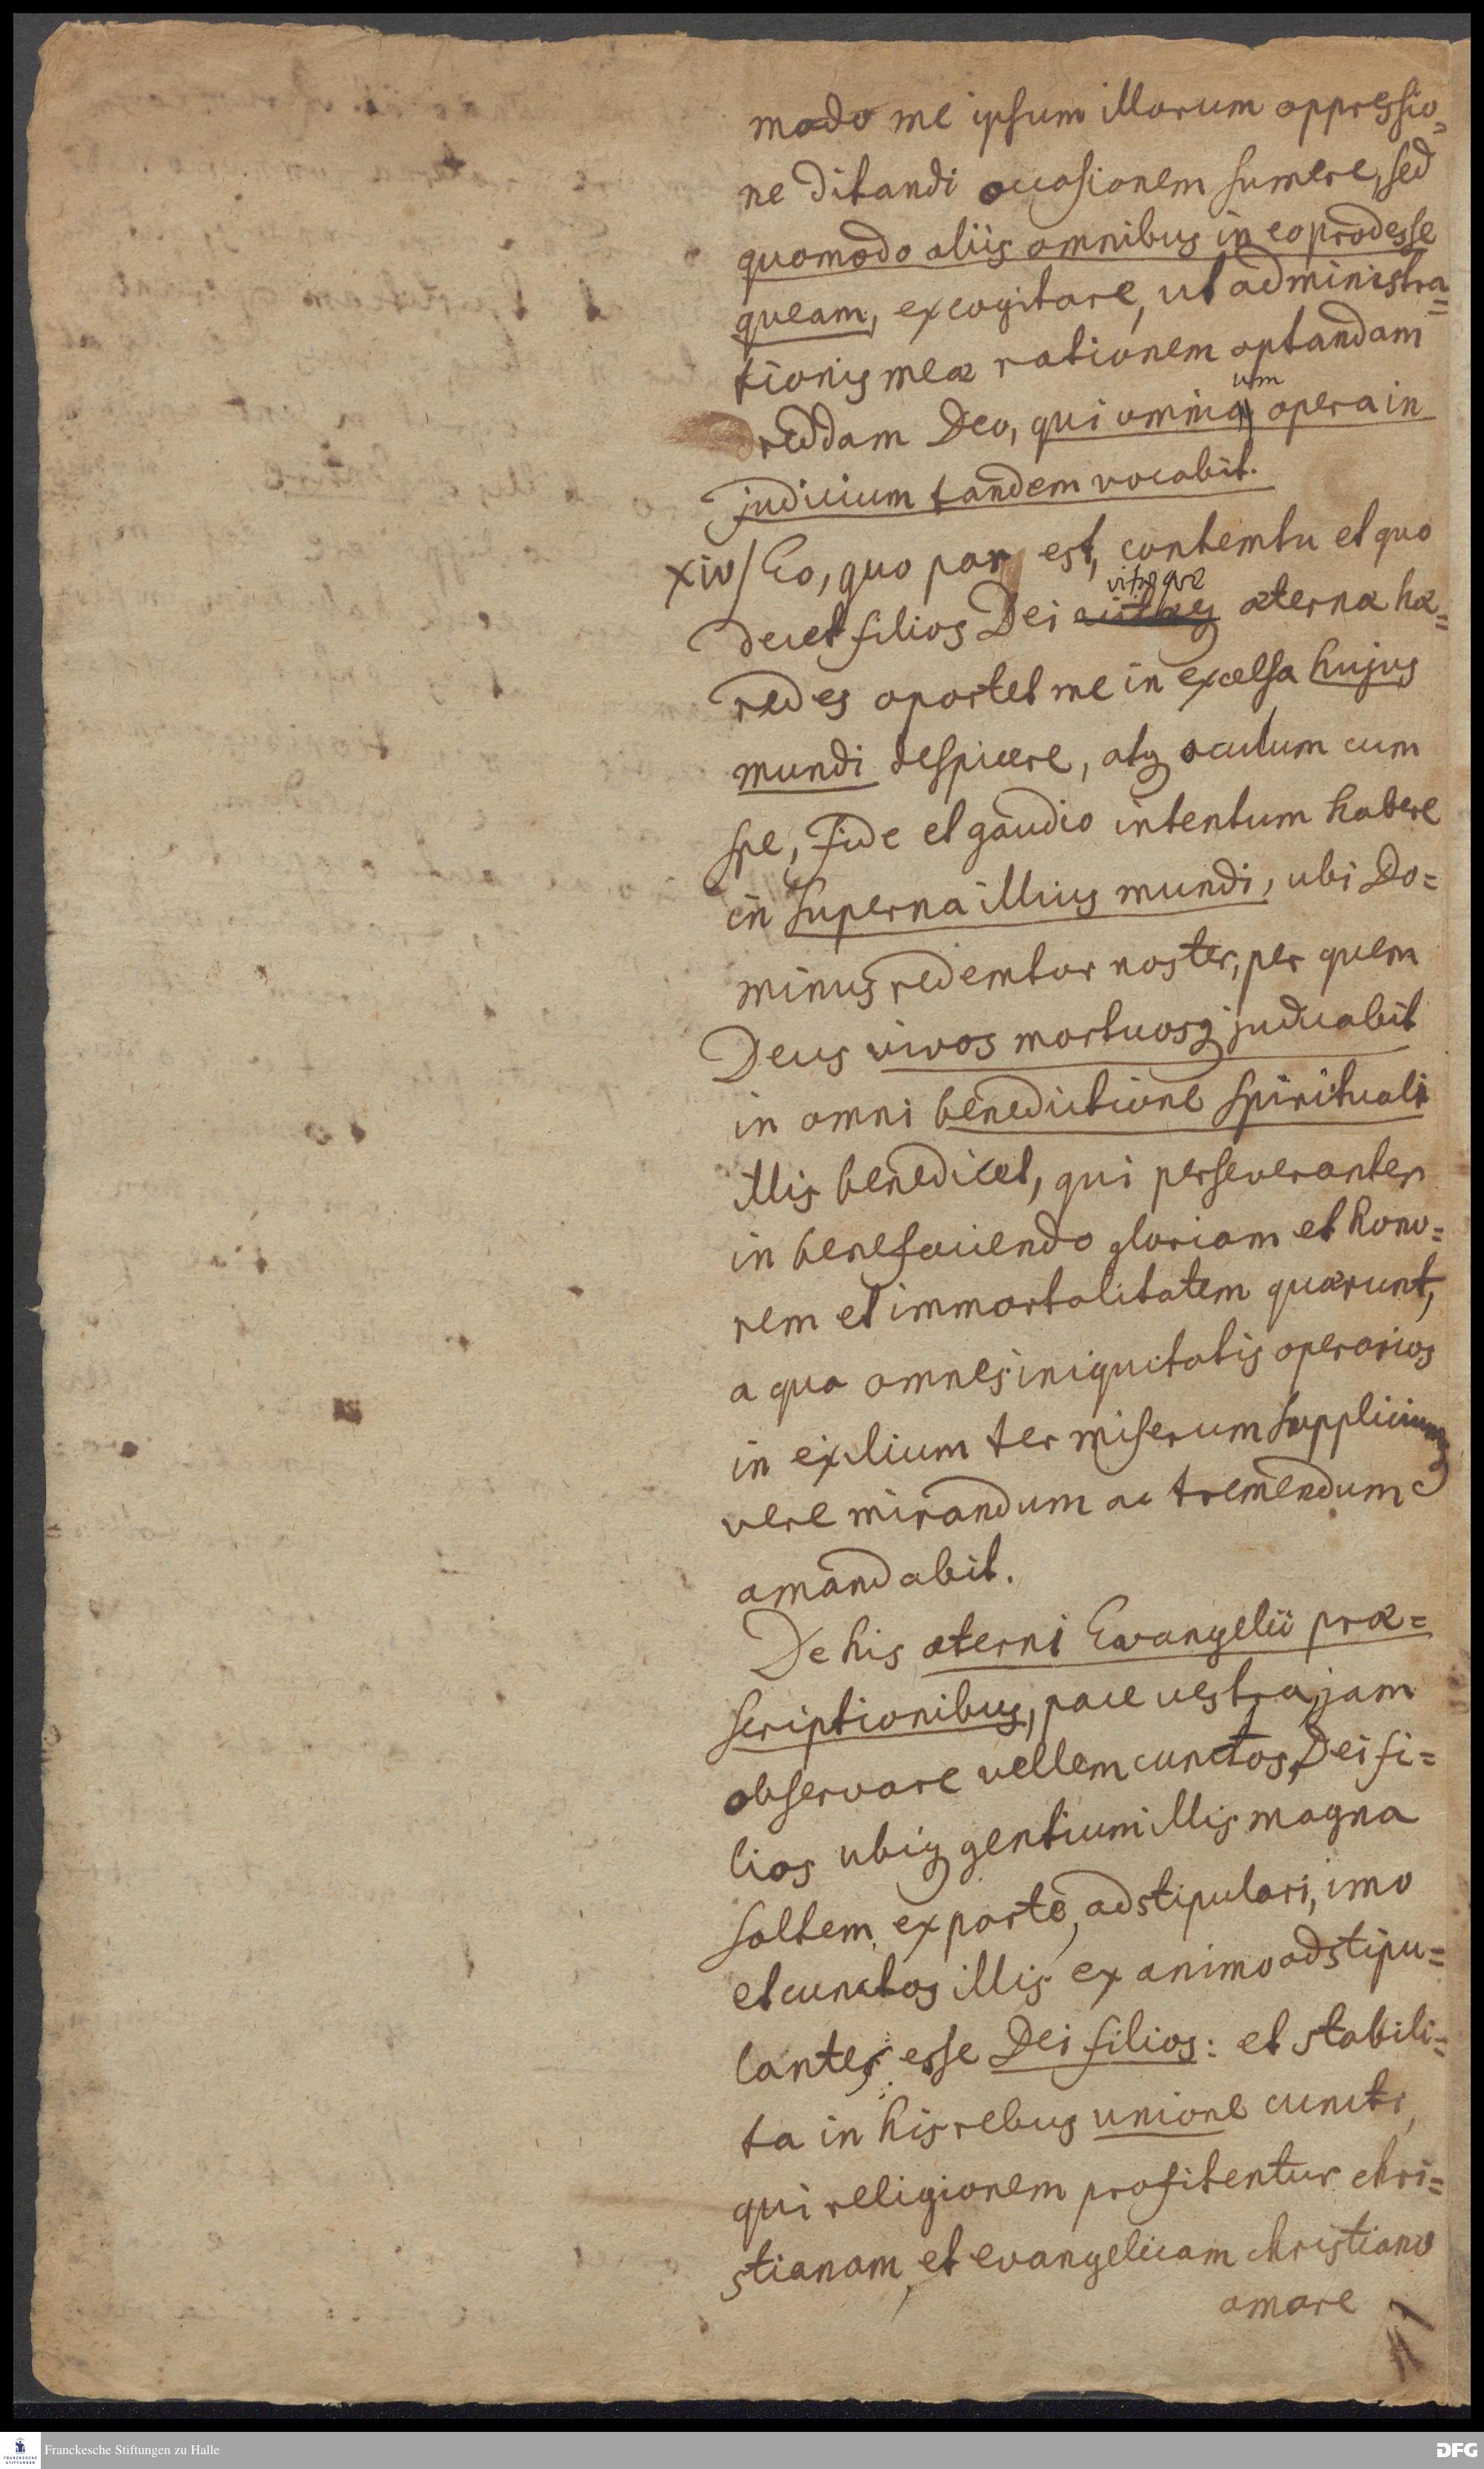 modo me ipsum illorum oppressio=
ne ditandi occasionem sumere, sed
quomodo aliis omnibus in eo prodesse
queam, excogitare, ut administra=
tionis meæ rationem optandam
um
reddam Deo, qui omnia opera in
judicium tandem vocabit.
xiv/ Eo, quo par est, contemtu et quo
vitæque
decet filios Dei æternæ hæ=
redes oportet me in excelsa hujus
mundi despicere, atq oculum cum
spe, fide et gaudio intentum habere
in superna illius mundi, ubi Do=
minus redemtor noster, per quem
Deus vivos mortuosq judicabit
in omni benedictione spirituali
illis benedicet, qui perseveranter
in benefaciendo gloriam et hono=
rem et immortalitatem quærunt,
a quo omnes iniquitatis operarios
in exilium ter miserum suppliciumq
vere mirandum ac tremendum
amandabit.
De his æterni Evangelii præ=
scriptionibus, pace vestra, jam
observare vellem cunctos, Dei fi=
lios ubiq gentium illis magna
saltem ex parte, adstipulari, imo
et cunctos illis ex animo adstipu=
lantes esse Dei filios: et stabili=
ta in his rebus unione cuncti,
qui religionem profitentur chri=
stianam, et evangelicam christiano
amare
Franckesche Stiftungen zu Halle
DFG